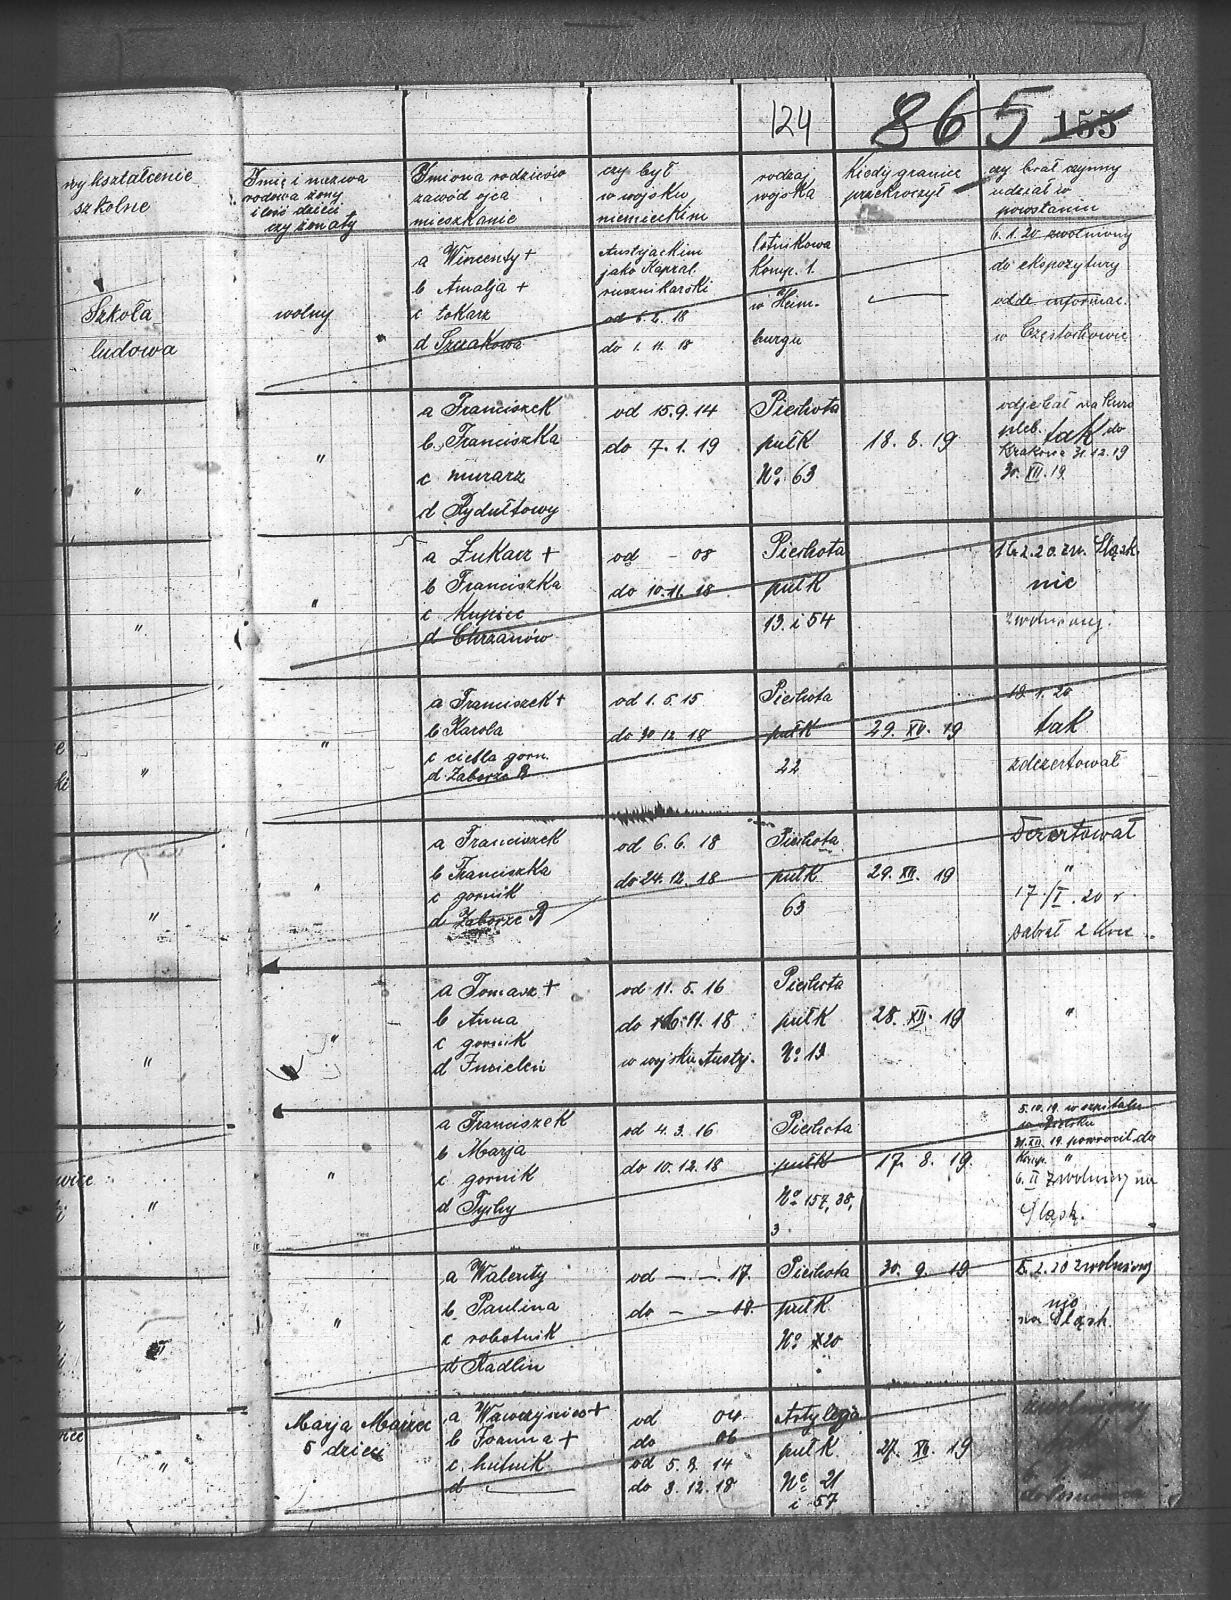 124 865 155
wykształcenie
szkolne
Imię i nazwa
rodowa żony
i ilość dzieci
czy żonaty
Imiona rodziców
zawód ojca
mieszkanie
czy był
w wojsku
niemieckim
rodzaj
wojska
Kiedy granicę
przekroczył
czy brał czynny
udział w
powstaniu
Szkoła
ludowa
wolny
a Wincenty +
b Amalja +
c tokarz
d Szczakowa
Austrjackim
jako Kapral
od 6. 2. 18
do 1. 11. 18
lotnikowa
Komp. 1.
w Heim-
burgu
—
6.1.20 zwolniony
do ekspozytury
oddz. informac.
w Częstochowie
"
"
a Franciszek
b Franciszka
c murarz
d Rydułtowy
od 15.9.14
do 7.1.19
Piechota
pułk
No. 63
18. 8. 19
odjechał na kurs
pleb. tak do
Krakowa 31.12.19
30. XII. 19
"
"
a Łukarz +
b Franciszka
c Kupiec
d Chrzanów
od - 08
do 10.11.18
Piechota
pułk
13. i 54
16.2.20 zw. Śląsk.
nie
zwolniony.
"
"
a Franciszek +
b Karola
c cieśla gorn.
d Zaborze B
od 1. 5. 15
do 30 12. 18
Piechota
pułk
22
29. XII. 19
19. 1. 20
tak
zdezertował
"
"
a Franciszek
b Franciszka
c gornik
d Zaborze B
od 6. 6. 18
do 24. 12. 18
Piechota
pułk
63
29. XII. 19
Dezertował
"
17./I. 20 r.
zabrał 2 Koce
"
"
a Tomasz +
b Anna
c gornik
d Imielin
od 11. 5. 16
do 16. 11. 18
w wojsku Austrj.
Piechota
pułk
No 13
28. XII. 19
"
"
"
a Franciszek
b Marja
c gornik
d Tychy
od 4. 3. 16
do 10. 12. 18
Piechota
pułk
No 157, 38,
3.
17. 8. 19.
5.10.19. w szpitalu
31. XII. 19 powrocił do
Komp. "
6. II zwolniony na
Śląsk.
"
"
a Walenty
b Paulina
c robotnik
d Radlin
od — — 17.
do — — 18.
Piechota
pułk
No 20
30. 9. 19
5.2.20 zwolniony
nie
na Śląsk.
"
Marja
5 dzieci
a Wawrzyniec +
b Joanna +
c hutnik
d —
od 04.
do 06
od 5. 8. 14
do 3. 12. 18
Artylerja
pułk
No 21
i 57
27. XII. 19
zwolniony